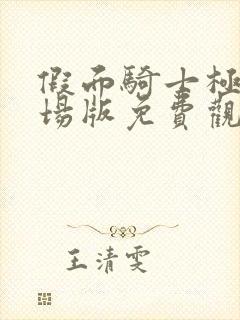 假而騎士極
場版免費觀
王清雯